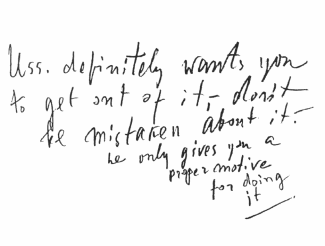 Uss. definitely wants you
to get out of it, – don't
be mistaken about it. –
he only gives you a
proper motive
for doing
it